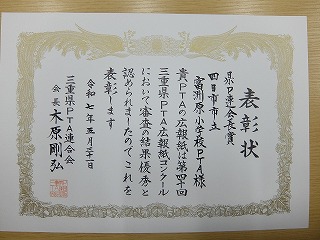 表彰状
県P連会長賞
四日市市立
富洲原小学校PTA様
貴PTAの広報紙は第四十回
三重県PTA広報紙コンクール
において審査の結果優秀と
認められましたのでこれを
表彰します
令和七年五月三十一日
三重県PTA連合会
会長 木原剛弘